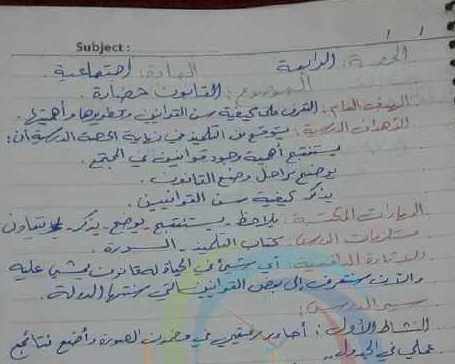 Subject :
/ /
الحصة : الرابعة المادة : اجتماعية
الموضوع : القانون حضارة .
الهدف العام : التعرف على كيفية سن القوانين وتطويرها وأهميتها .
الأهداف الدرسية : يتوقع من التلميذ في نهاية الحصة الدرسية أن :
يستنتج أهمية وجود قوانين في المجتمع .
يوضح مراحل وضع القانون .
يذكر كيفية سن القوانين .
المهارات المكتسبة : يلاحظ - يستنتج - يوضح - يذكر - يتعاون
مستلزمات الدرس : كتاب التلميذ - السبورة
أي شيء في الحياة له قانون يمشي عليه
والآن سنتعرف إلى بعض القوانين التي سنتها الدولة .
سير الدرس :
النشاط الأول : أحاور رفيقي في مضمون الصورة وأضع نتائج
عملي في الجدول